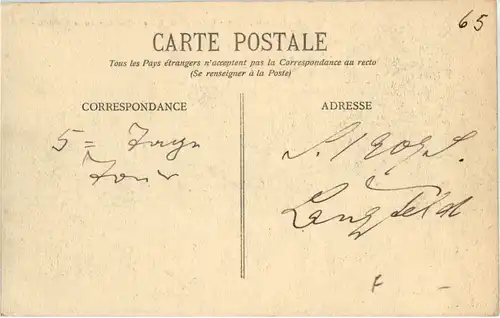 65
CARTE POSTALE
Tous les Pays étrangers n'acceptent pas la Correspondance au recto
(Se renseigner à la Poste)
CORRESPONDANCE
ADRESSE
5 = Tage
Tour
Langfeld